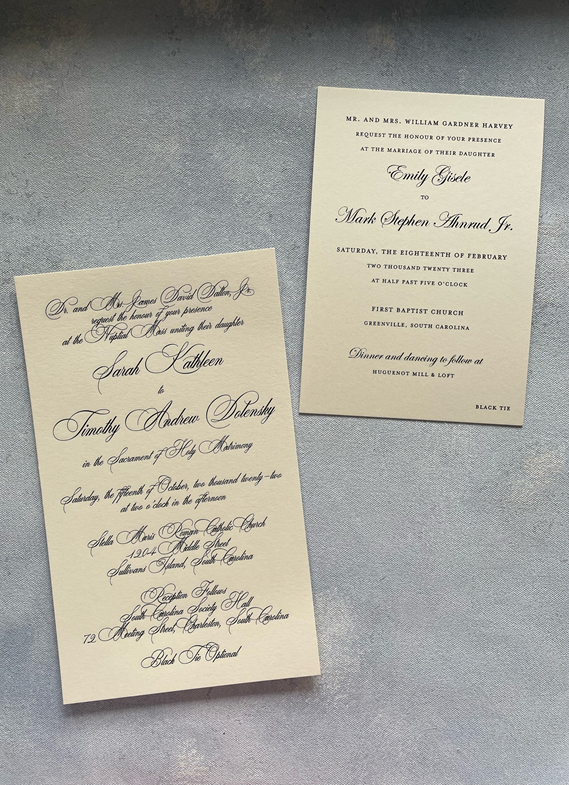 Dr. and Mrs. James David Dalton, Jr.
request the honour of your presence
at the Nuptial Mass uniting their daughter
Sarah Kathleen
to
Timothy Andrew Dotensky
in the Sacrament of Holy Matrimony
Saturday, the fifteenth of October, two thousand twenty-two
at two o'clock in the afternoon
Stella Maris Roman Catholic Church
1204 Middle Street
Sullivans Island, South Carolina
Reception Follows
South Carolina Society Hall
72 Meeting Street, Charleston, South Carolina
Black Tie Optional
MR. AND MRS. WILLIAM GARDNER HARVEY
REQUEST THE HONOUR OF YOUR PRESENCE
AT THE MARRIAGE OF THEIR DAUGHTER
Emily Gisele
TO
Mark Stephen Ahnrud, Jr.
SATURDAY, THE EIGHTEENTH OF FEBRUARY
TWO THOUSAND TWENTY THREE
AT HALF PAST FIVE O'CLOCK
FIRST BAPTIST CHURCH
GREENVILLE, SOUTH CAROLINA
Dinner and dancing to follow at
HUGUENOT MILL & LOFT
BLACK TIE